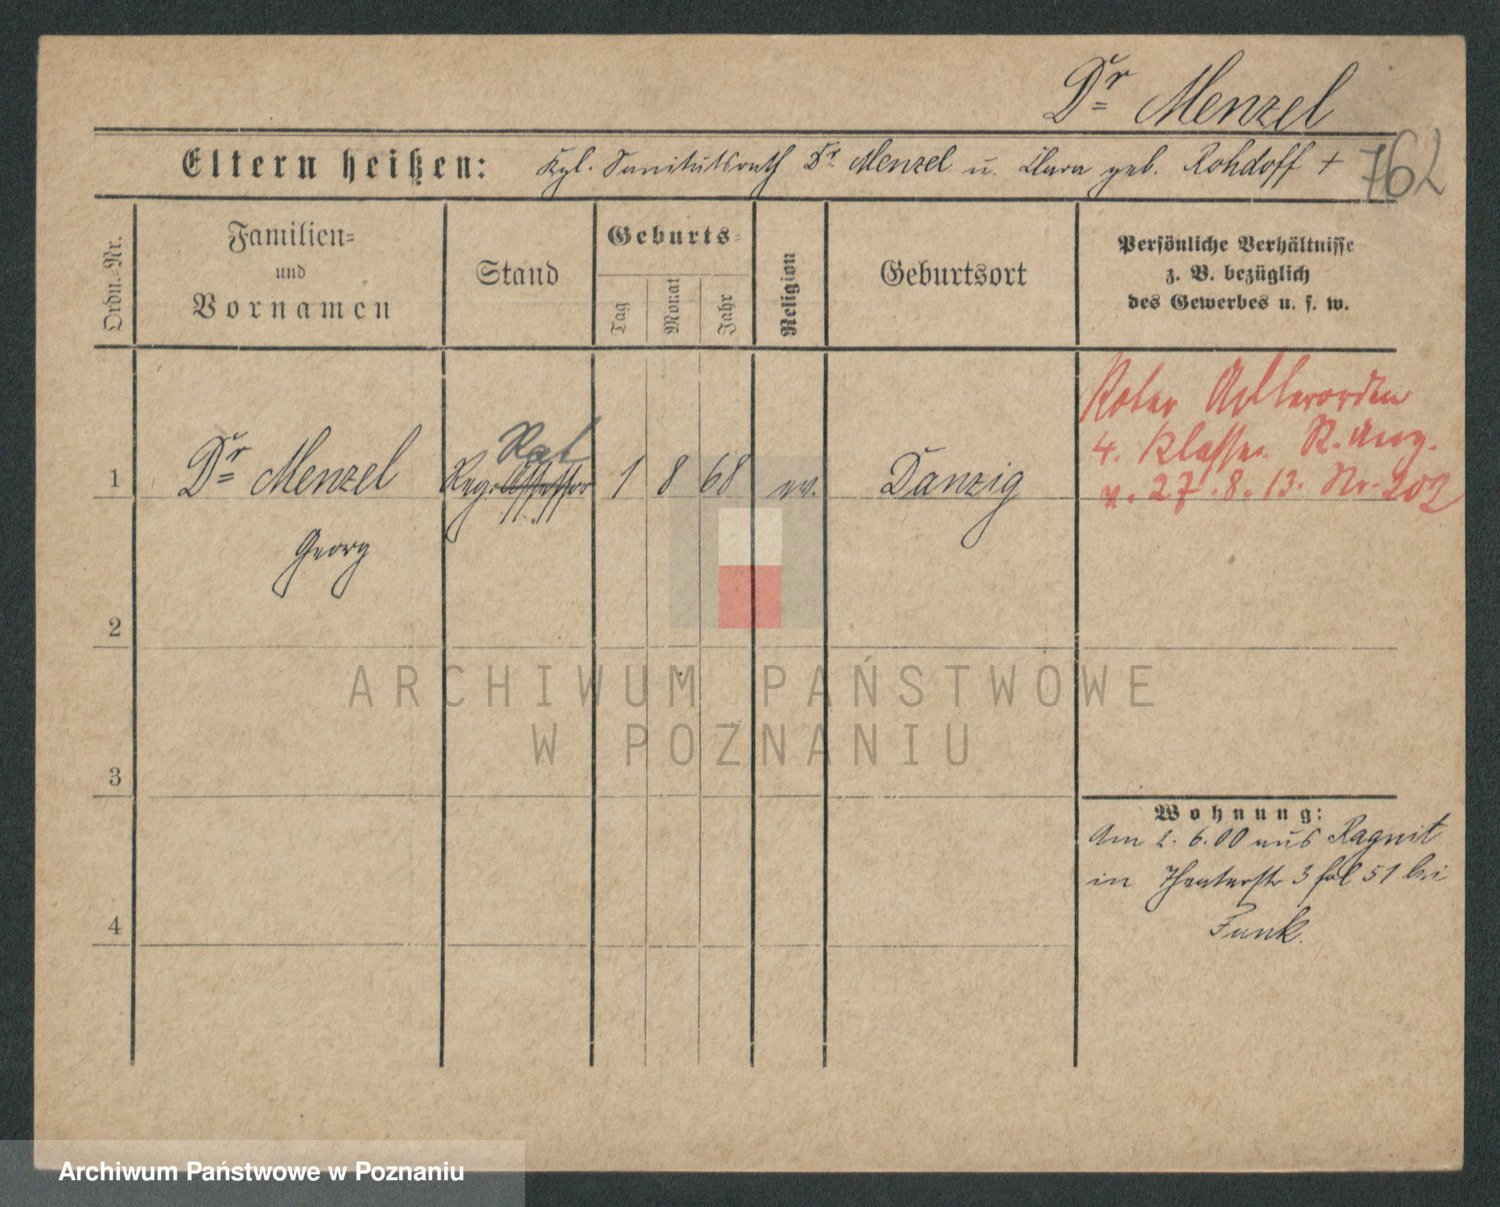 Dr Menzel
Eltern heißen: Kgl. Sanitätsrath Dr. Menzel u. Clara geb. Rohdoff +
762
Ordn.-Nr.
Familien-
und
Vornamen
Stand
Geburts-
Tag
Monat
Jahr
Religion
Geburtsort
Persönliche Verhältnisse
z. B. bezüglich
des Gewerbes u. s. w.
Roter Adlerorden
4. Klasse. R. Anz.
v. 27.8.13. Nr. 202
Rat
1 Dr Menzel Reg. Assessor 1 8 68 ev. Danzig
Georg
2
3
4
Wohnung:
Am 2. 6. 00 aus Ragnit
in Theaterstr 3 bei
Funk.
ARCHIWUM PAŃSTWOWE
W POZNANIU
Archiwum Państwowe w Poznaniu